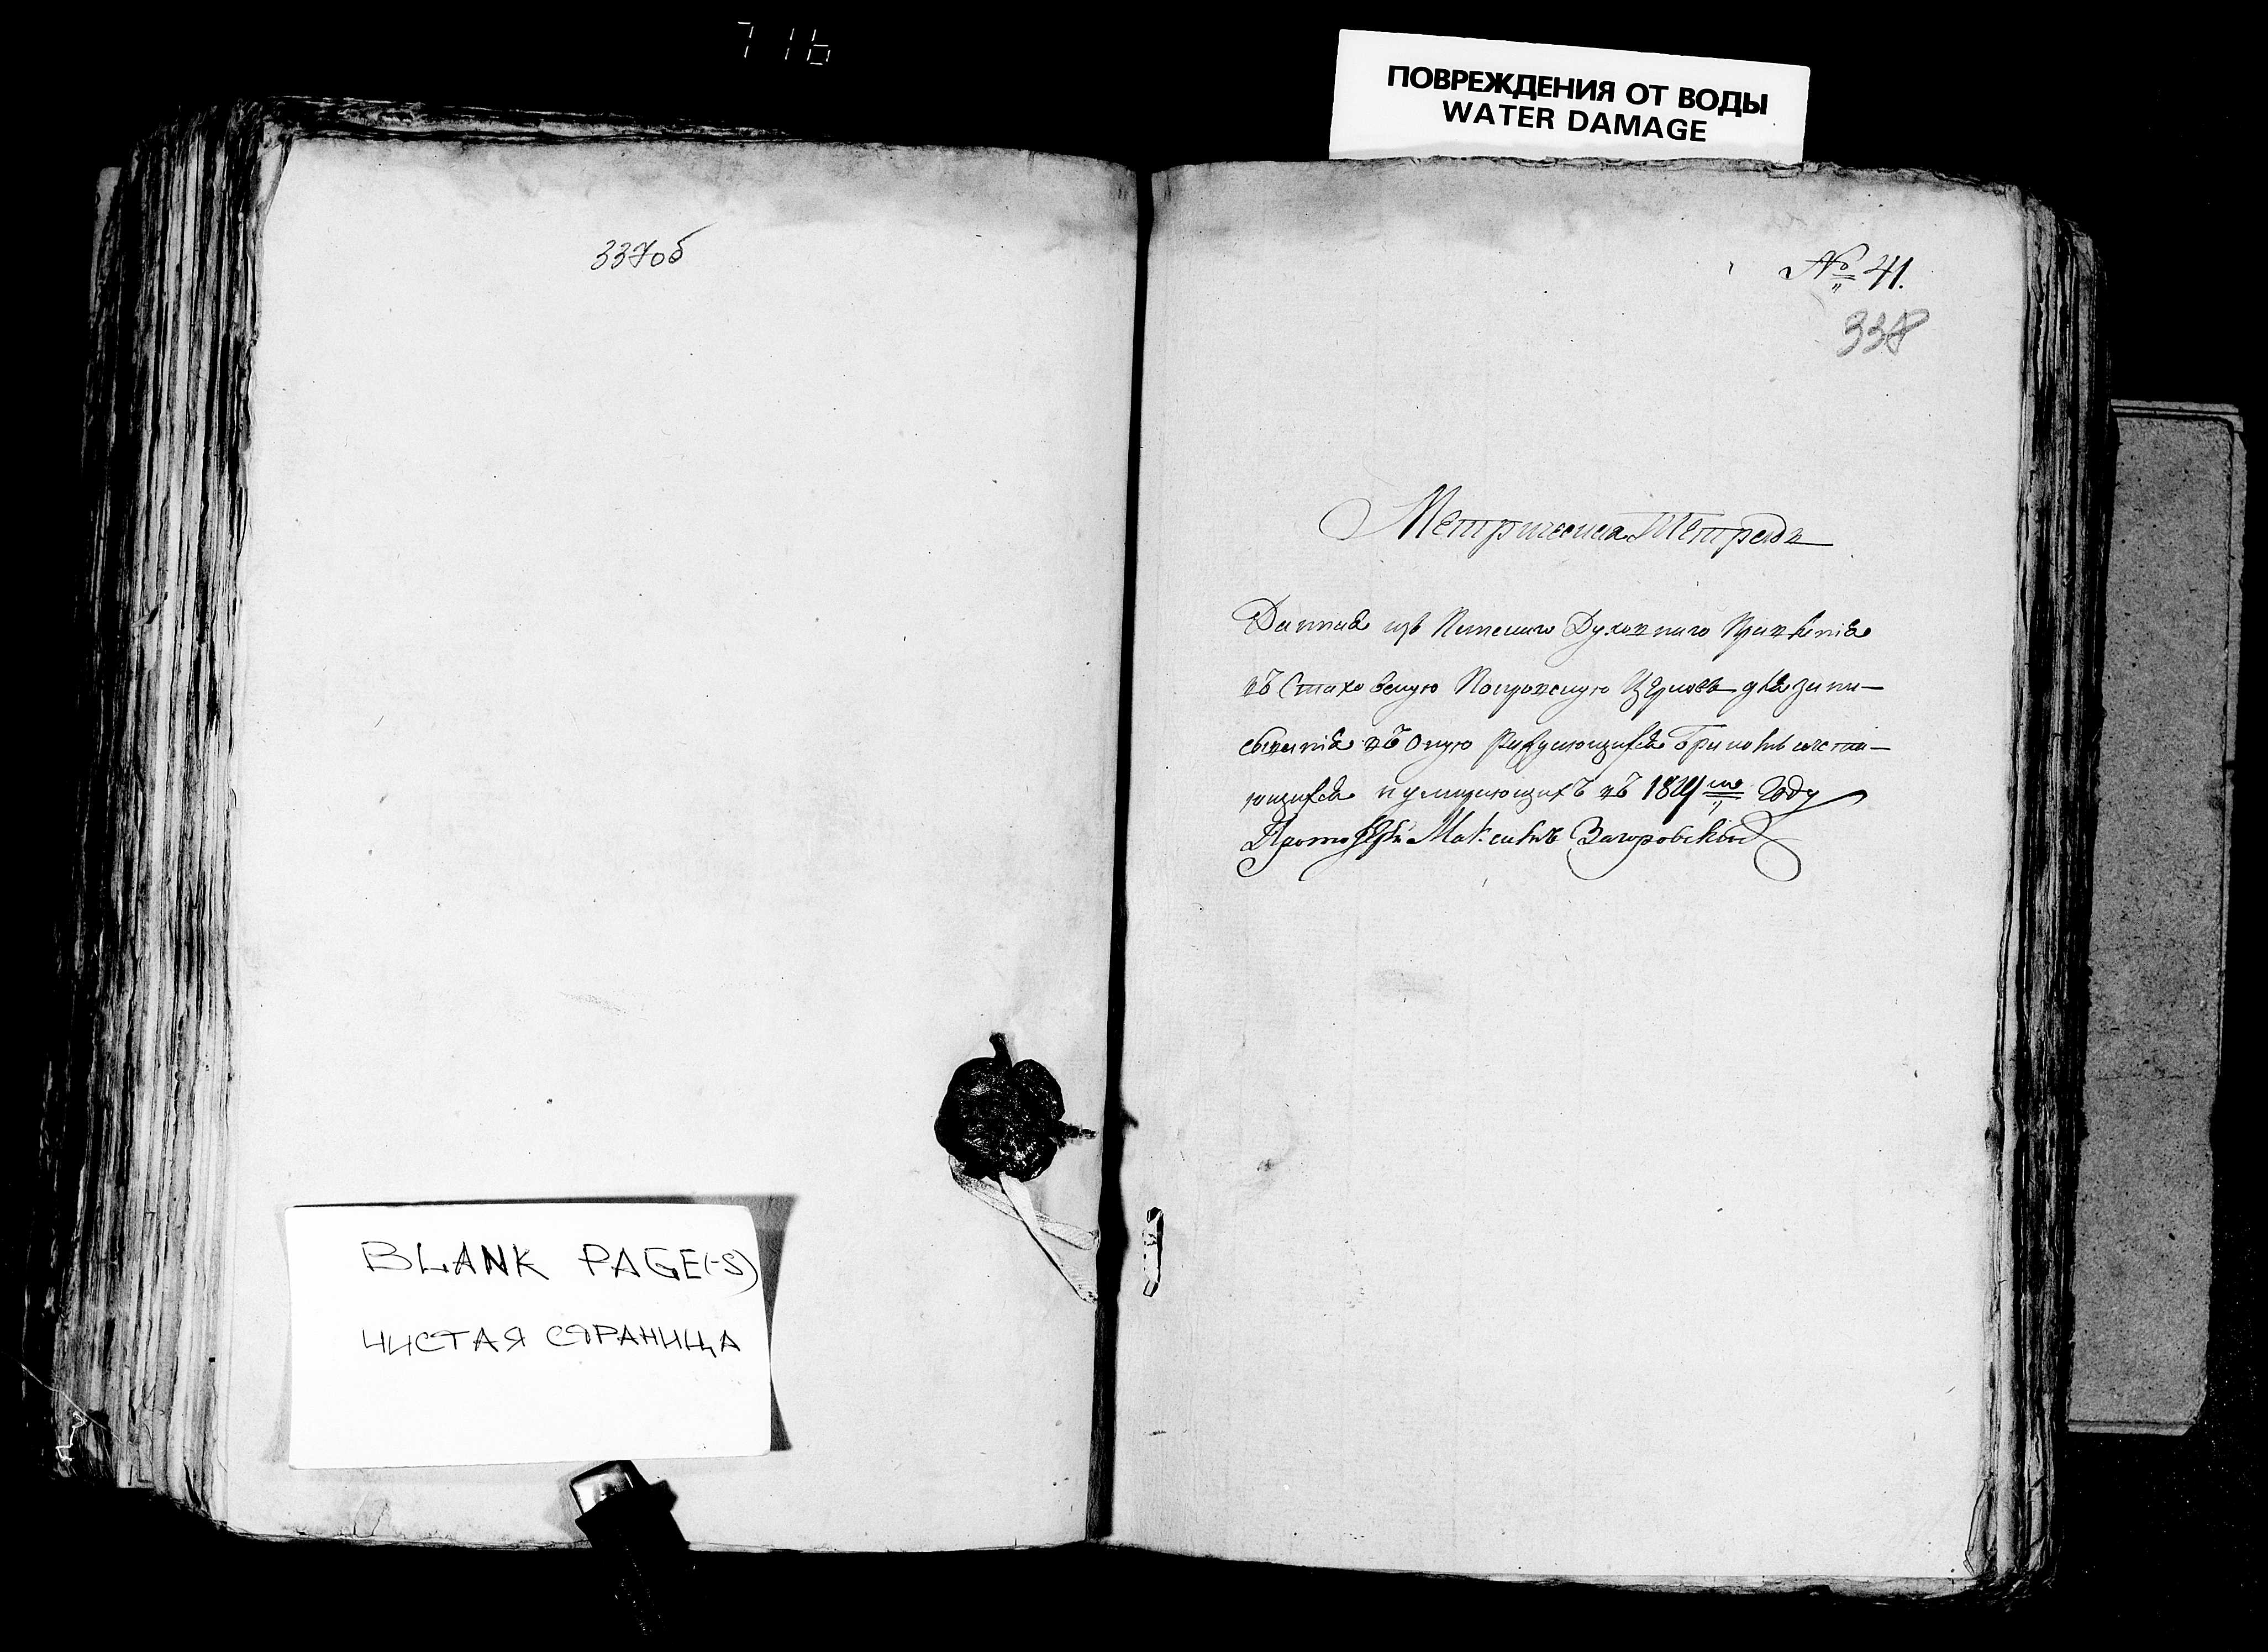 716
ПОВРЕЖДЕНИЯ ОТ ВОДЫ
WATER DAMAGE
337об
№ 41.
338
Метрическая Тетрадь
Данная изъ Пинскаго Духовнаго Правленія
въ Стаховскую Покровскую Церковь для запи-
сыванія въ оную раждающихся бракомъ сочета-
ющихся и умирающихъ въ году
Протоіерей Максимъ Загоровскій
BLANK PAGE(-S)
ЧИСТАЯ СТРАНИЦА